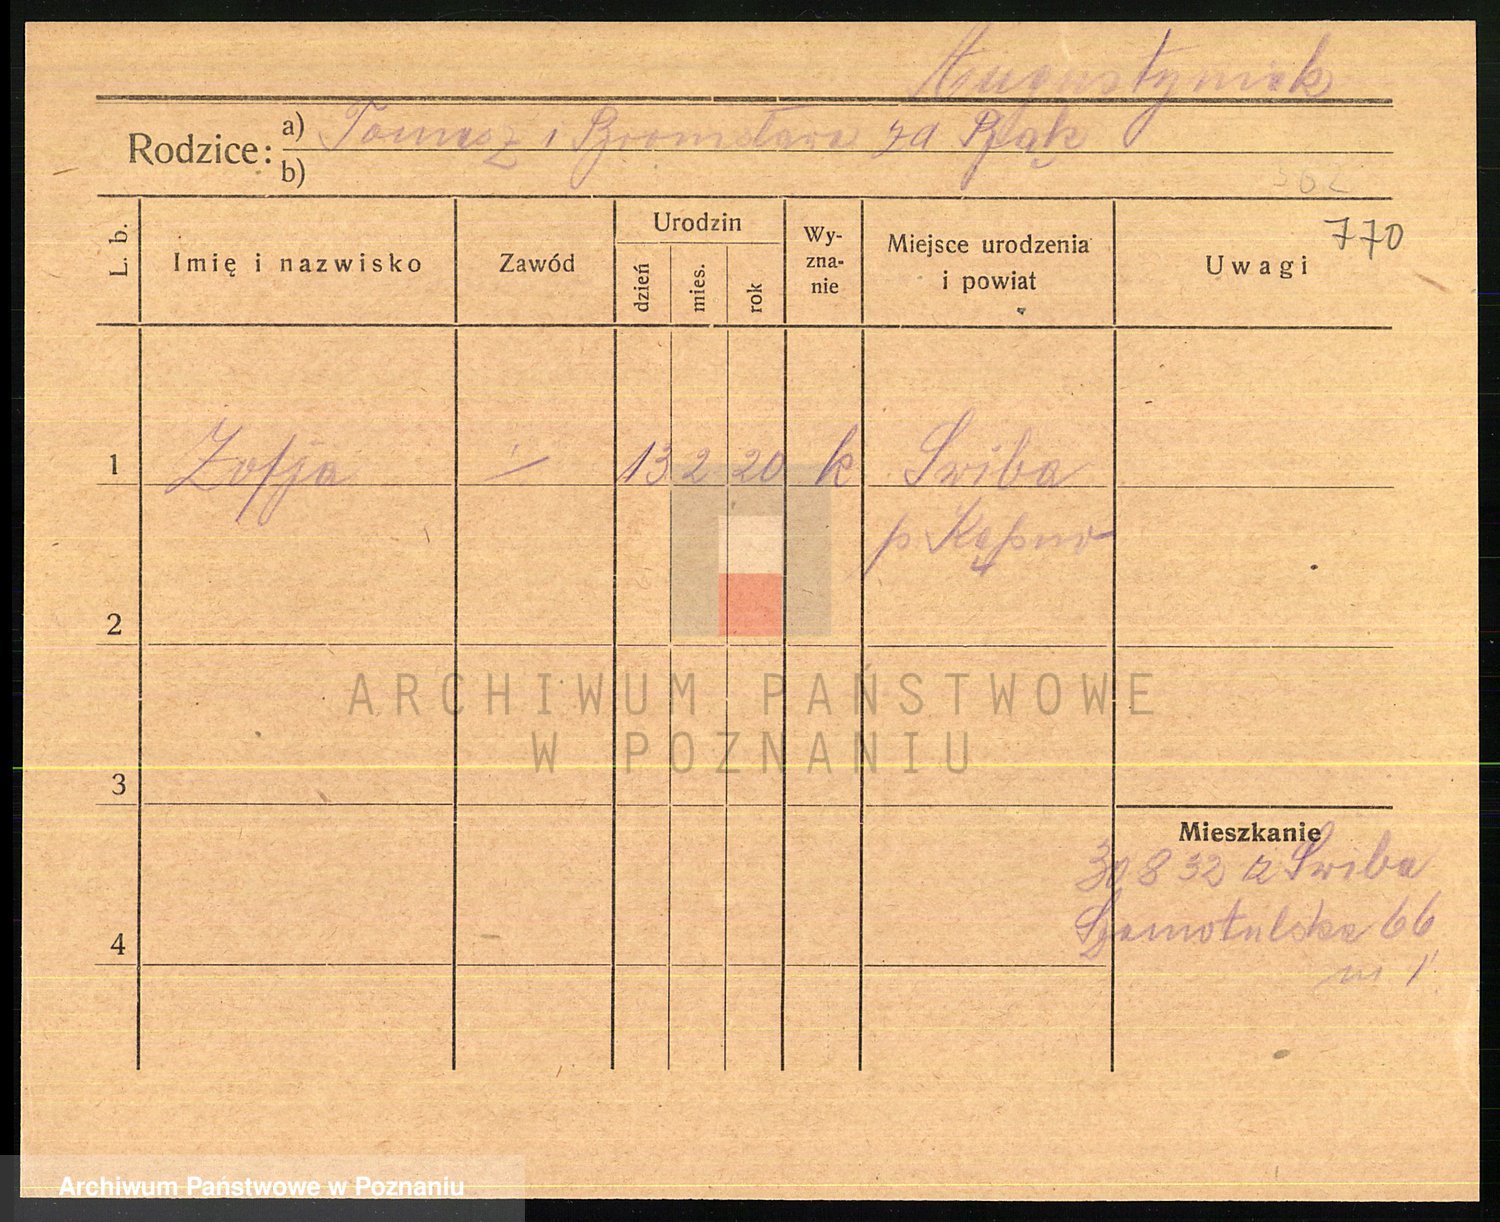 Augustyniak
Rodzice: a) Tomasz i Bronisława za Bąk
b)
562
770
L. b.
Imię i nazwisko
Zawód
Urodzin
dzień
mies.
rok
Wy-
zna-
nie
Miejsce urodzenia
i powiat
Uwagi
1 Zofja 13 2 20 k Sriba
p Kępno
2
ARCHIWUM PAŃSTWOWE
W POZNANIU
3
Mieszkanie
30 8 32 z Sriba
Szamotulska 66
m 1
4
Archiwum Państwowe w Poznaniu